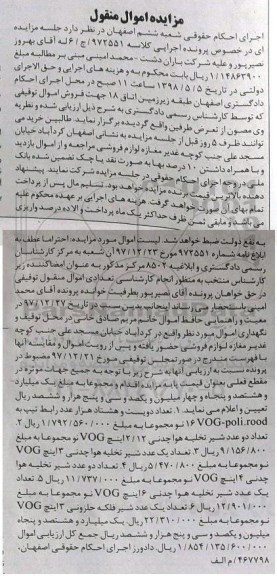 مزایده اموال منقول
اجرای احکام حقوقی شعبه ششم اصفهان در نظر دارد جلسه مزایده
ای در خصوص پرونده اجرایی کلاسه ۹۷۲۵۵۱ ج/ ۶ له آقای بهروز
نصیرپور و علیه شرکت باران دشت - محمد امینی مبنی بر مطالبه مبلغ
۱/۱۴۸۶۳۹۰۰ ریال بابت محکوم به و هزینه های اجرایی و حق الاجرای
دولتی در تاریخ ۱۳۹۸/۵/۵ ساعت ۱۱ صبح در محل اجرای احکام
دادگستری اصفهان طبقه زیرزمین اتاق ۱۸ جهت فروش اموال توقیفی
که توسط کارشناس رسمی دادگستری به شرح ذیل ارزیابی شده و نظریه
وی مصون از تعرض طرفین واقع گردیده برگزار نماید. طالبین خرید می
توانند ظرف ۵ روز قبل از جلسه مزایده به نشانی اصفهان کردآباد خیابان
مسجد علی جنب کوچه غدیر مغازه لوازم فروشی مراجعه و از اموال بازدید
و با همراه داشتن ۱۰ درصد بها به صورت نقد یا چک تضمین شده بانک
ملی در وجه اجرای احکام حقوقی در جلسه مزایده شرکت نمایند. پیشنهاد
دهنده بالاترین قیمت برنده مزایده خواهد بود. تسلیم مال پس از پرداخت
تمام بهای آن صورت خواهد گرفت. هزینه های اجرایی بر عهده محکوم علیه
می باشد و مابقی ثمن ظرف حداکثر یک ماه پرداخت و الا ده درصد واریزی
به نفع دولت ضبط خواهد شد. لیست اموال مورد مزایده: احتراما عطف به
ابلاغ نامه شماره ۹۷۲۵۵۱ مورخ ۹۷/۱۲/۲۳ آن شعبه به مرکز کارشناسان
رسمی دادگستری و ابلاغیه ۸۵۰۴-۲ مرکز مذکور به عنوان امضاکننده زیر
کارشناس منتخب به منظور انجام کارشناسی تعدادی اموال منقول توقیفی
در حق خواهان پرونده آقای نصیرپور بطرفیت خوانده پرونده آقای محمد
در تاریخ ۹۷/۱۲/۲۷ در
معیت و راهنمایی حافظ اموال خانم مریم صادقی خانی در محل توقیف و
نگهداری اموال مورد نظر واقع در کردآباد خیابان مسجد علی جنب کوچه
غدیر مغازه لوازم فروشی حضور یافته و پس از رویت اموال و مقایسه آنها
با فهرست مندرج در صورتمجلس توقیفی مورخ ۹۷/۱۲/۲۱ مضبوط در
پرونده نسبت به ارزیابی آنها به شرح زیر با توجه به جمیع جهات موثره در
مقطع فعلی بعنوان قیمت پایه مزایده اقدام و مجموعا به مبلغ یک میلیارد
و هشتصد و پنجاه و چهار میلیون و یکصد و سی و پنج هزار و ششصد ریال
تعیین و اعلام می نمایند. ۱. تعداد دویست و هشتاد هزار عدد رابط تیپ به
VOG-poli.rood ۱۶ نو مجموعا به مبلغ ۱/۷۹۲/۵۶۰/۰۰۰ ریال ۲.
تعداد دو عدد شیر تخلیه هوا چدنی ۲/۱۲ اینچ VOG نو مجموعا به مبلغ
۹/۱۵۶/۸۰۰ ریال ۳. تعداد یک عدد شیر تخلیه هوا چدنی ۳ اینچ VOG
نو مجموعا به مبلغ ۵/۴۷۰/۸۰۰ ریال ۴. تعداد دو عدد شیر تخلیه هوا
چدنی ۴ اینچ VOG نو مجموعا به مبلغ ۱۱/۷۳۷/۰۰۰ ریال ۵. تعداد
یک عدد شیر تخلیه هوا چدنی ۶ اینچ VOG نو مجموعا به مبلغ
۱۲/۹۰۱/۰۰۰ ریال ۶. تعداد یک عدد شیر فلکه حلزونی ۳ اینچ VOG
نو مجموعا به مبلغ ۲۲/۳۱۰/۰۰۰ ریال. یک میلیارد و هشتصد و پنجاه
میلیون و یکصد و سی و پنج هزار و ششصد ریال جمع کل ارزیابی اموال
۱/۸۵۴/۱۳۵/۶۰۰/۰۰۰ ریال. دادورز اجرای احکام حقوقی اصفهان،
۴۶۷۷۹۸/ م الف